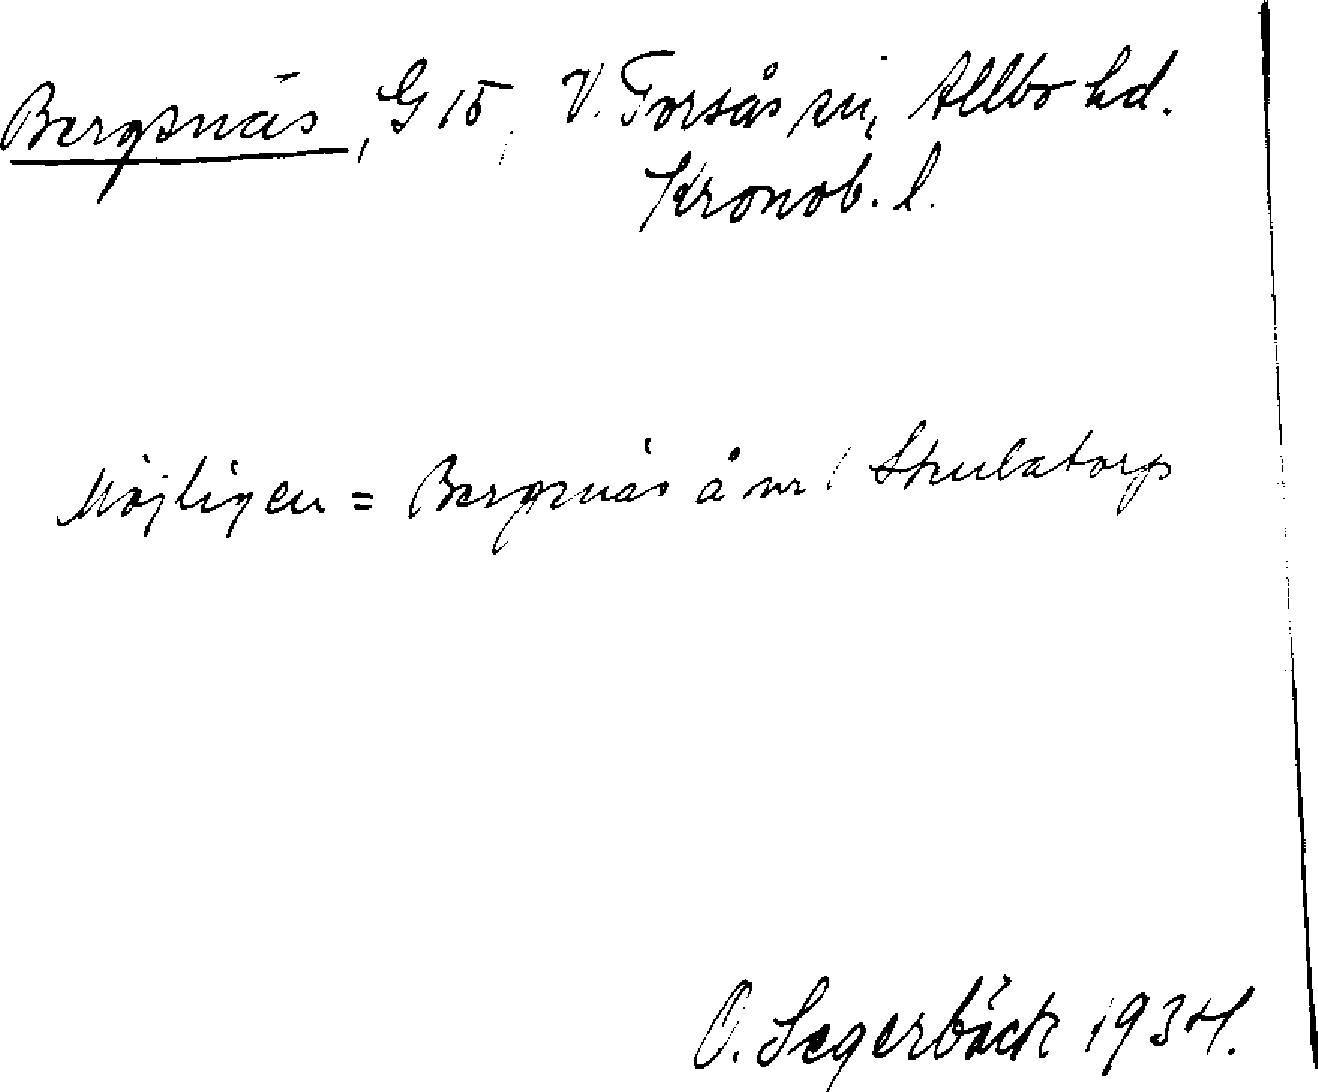 Bergsnäs, G 15, V. Torsås sn, Allbo hd.
Kronob. l.
Möjligen = Bergsnäs å nr 1 Skulatorp
O. Segerbäck 1934.